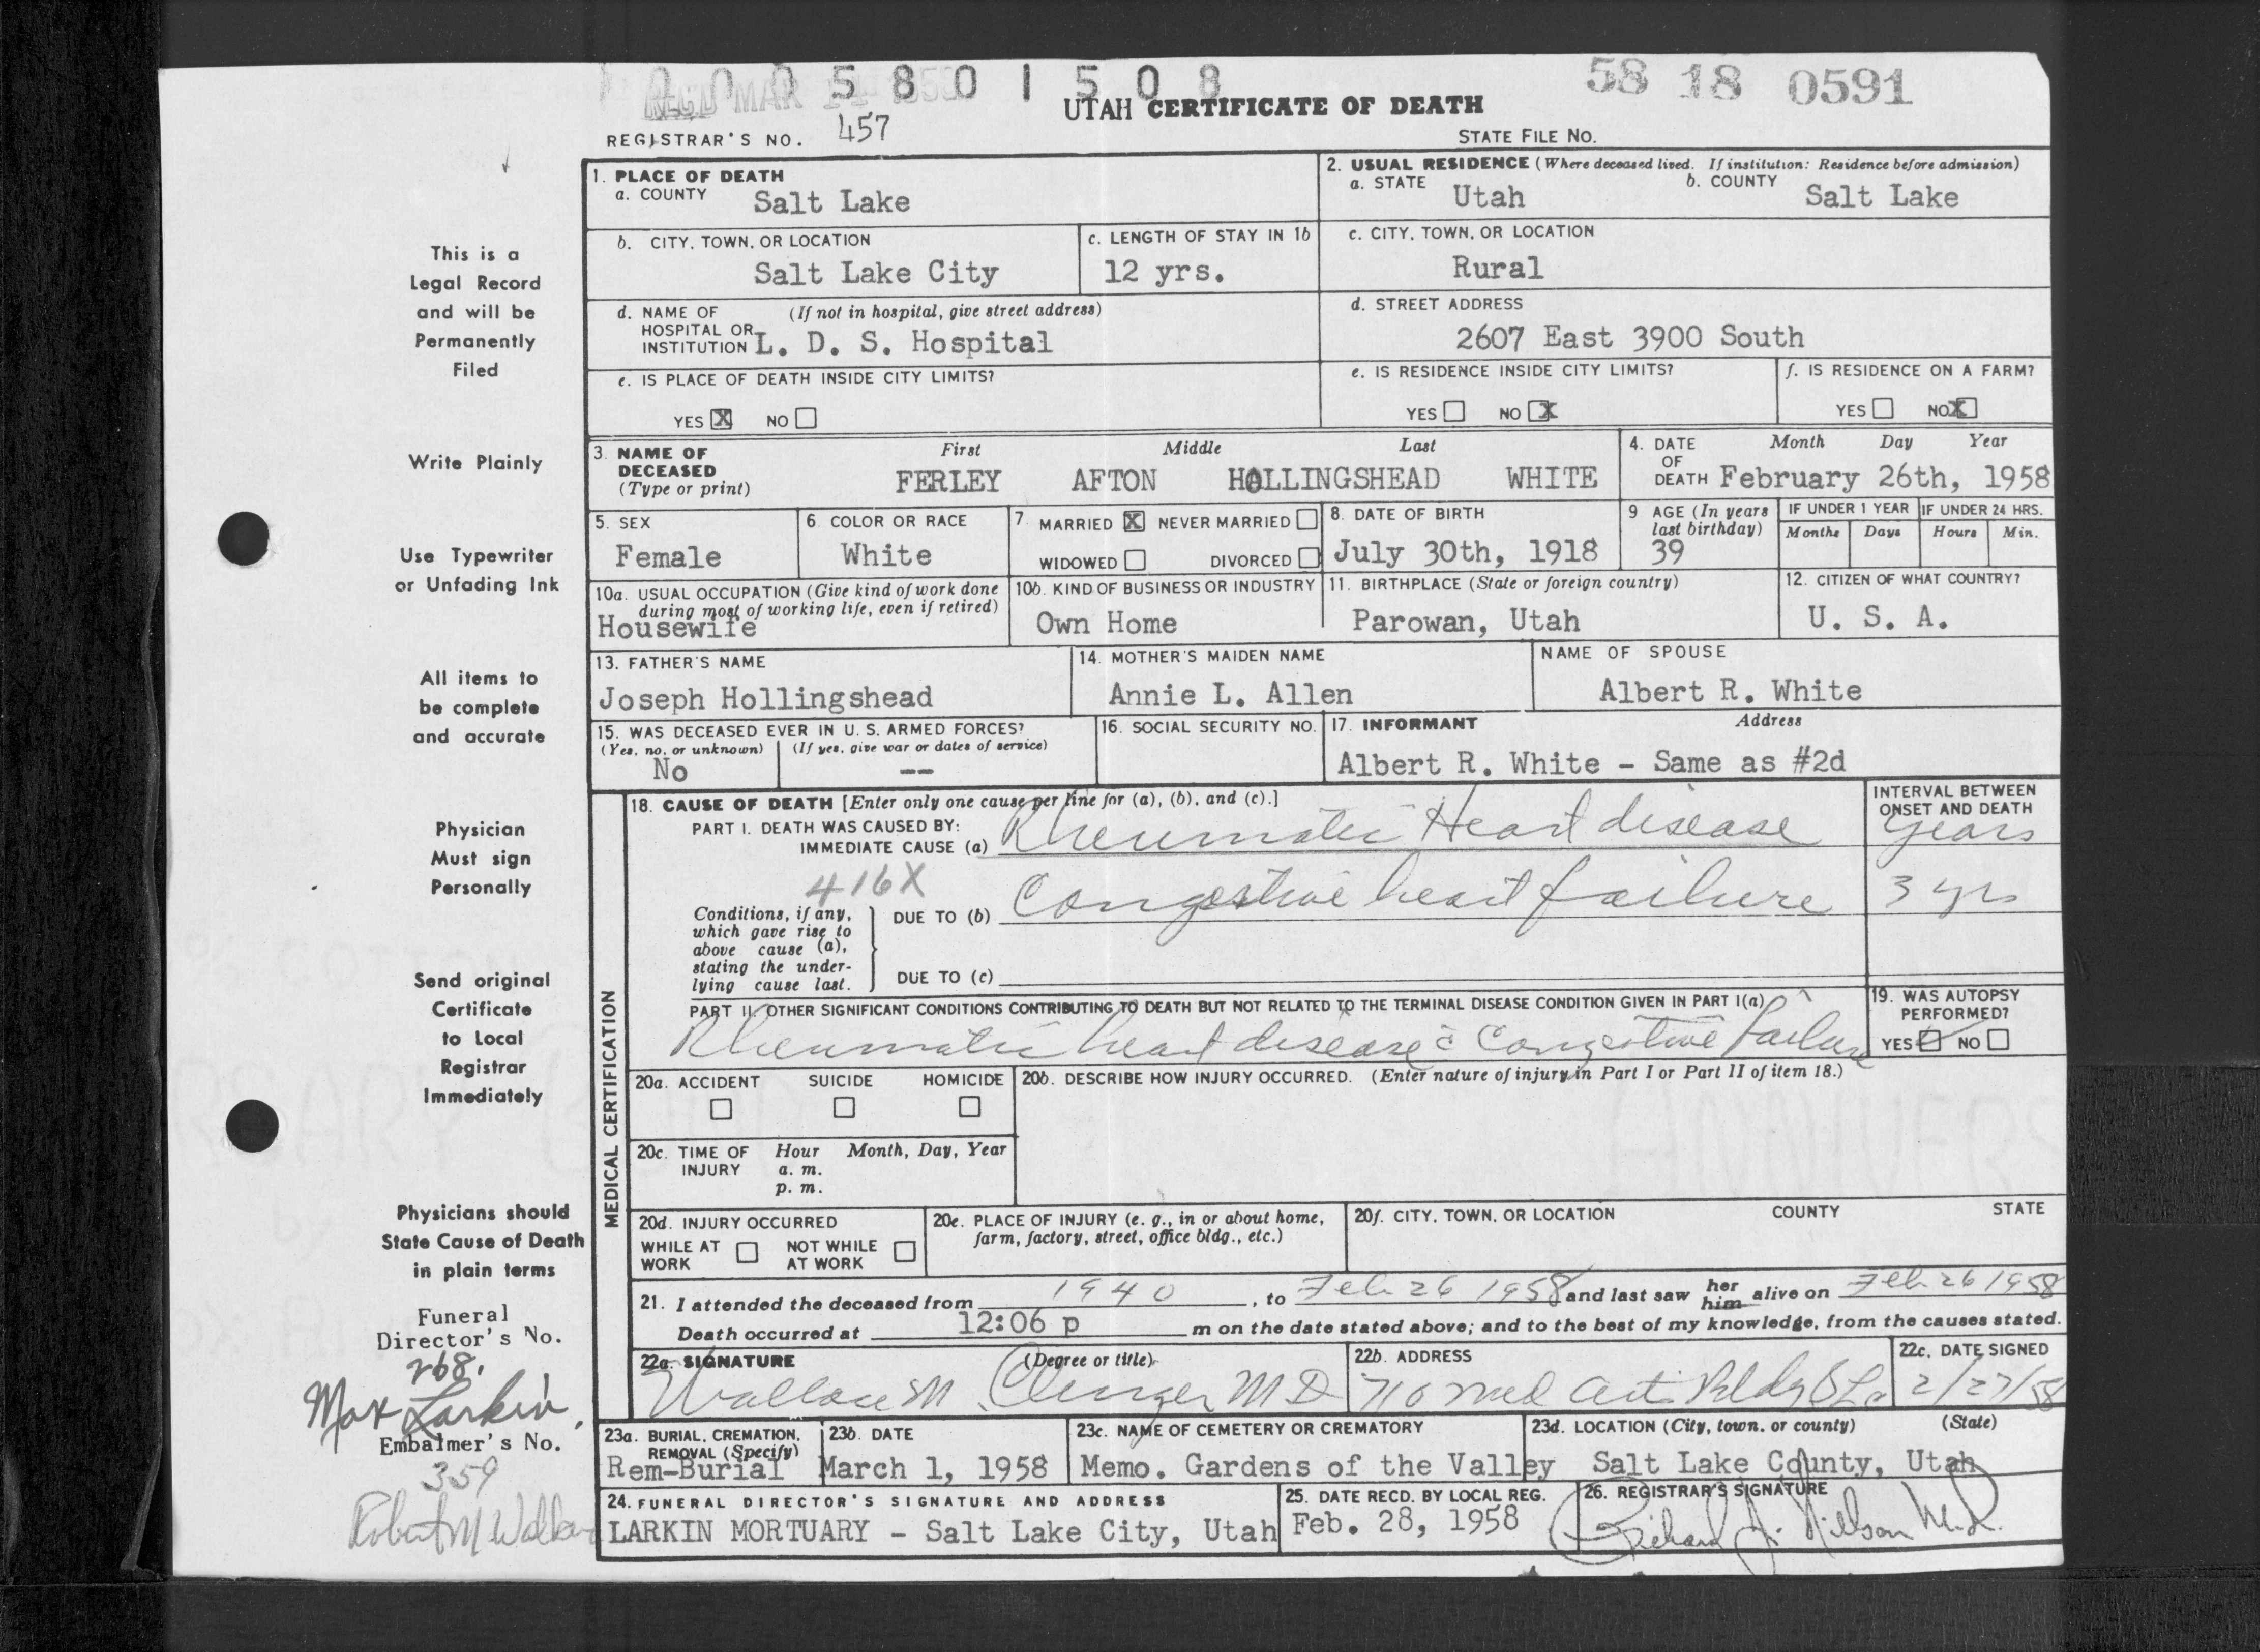 0 0 0 5 8 0 1 5 0 8
REC'D MAR
58 18 0591
UTAH CERTIFICATE OF DEATH
REGISTRAR'S NO. 457
STATE FILE NO.
This is a
Legal Record
and will be
Permanently
Filed
Write Plainly
Use Typewriter
or Unfading Ink
All items to
be complete
and accurate
Physician
Must sign
Personally
Send original
Certificate
to Local
Registrar
Immediately
Physicians should
State Cause of Death
in plain terms
Funeral
Director's No.
268.
Max Larkin
Embalmer's No.
359
Robert M Walker
1. PLACE OF DEATH
a. COUNTY Salt Lake
2. USUAL RESIDENCE (Where deceased lived. If institution: Residence before admission)
a. STATE Utah b. COUNTY Salt Lake
b. CITY, TOWN, OR LOCATION
Salt Lake City
c. LENGTH OF STAY IN 1b
12 yrs.
c. CITY, TOWN, OR LOCATION
Rural
d. NAME OF (If not in hospital, give street address)
HOSPITAL OR
INSTITUTION L. D. S. Hospital
d. STREET ADDRESS
2607 East 3900 South
e. IS PLACE OF DEATH INSIDE CITY LIMITS?
YES X NO
e. IS RESIDENCE INSIDE CITY LIMITS?
YES NO X
f. IS RESIDENCE ON A FARM?
YES NO X
3. NAME OF First Middle Last
DECEASED
(Type or print) FERLEY AFTON HOLLINGSHEAD WHITE
4. DATE Month Day Year
OF
DEATH February 26th, 1958
5. SEX
Female
6. COLOR OR RACE
White
7. MARRIED X NEVER MARRIED
WIDOWED DIVORCED
8. DATE OF BIRTH
July 30th, 1918
9 AGE (In years
last birthday)
39
IF UNDER 1 YEAR IF UNDER 24 HRS.
Months Days Hours Min.
10a. USUAL OCCUPATION (Give kind of work done
during most of working life, even if retired)
Housewife
10b. KIND OF BUSINESS OR INDUSTRY
Own Home
11. BIRTHPLACE (State or foreign country)
Parowan, Utah
12. CITIZEN OF WHAT COUNTRY?
U. S. A.
13. FATHER'S NAME
Joseph Hollingshead
14. MOTHER'S MAIDEN NAME
Annie L. Allen
NAME OF SPOUSE
Albert R. White
15. WAS DECEASED EVER IN U. S. ARMED FORCES?
(Yes, no, or unknown) (If yes, give war or dates of service)
No --
16. SOCIAL SECURITY NO.
17. INFORMANT Address
Albert R. White - Same as #2d
MEDICAL CERTIFICATION
18. CAUSE OF DEATH [Enter only one cause per line for (a), (b), and (c).]
INTERVAL BETWEEN
ONSET AND DEATH
PART I. DEATH WAS CAUSED BY:
IMMEDIATE CAUSE (a) Rheumatic Heart disease years
416X
Conditions, if any,
which gave rise to
above cause (a),
stating the under-
lying cause last.
DUE TO (b) Congestive heart failure 3 yrs
DUE TO (c)
PART II. OTHER SIGNIFICANT CONDITIONS CONTRIBUTING TO DEATH BUT NOT RELATED TO THE TERMINAL DISEASE CONDITION GIVEN IN PART I(a)
Rheumatic heart disease c̄ Congestive Failure
19. WAS AUTOPSY
PERFORMED?
YES NO
20a. ACCIDENT SUICIDE HOMICIDE
20b. DESCRIBE HOW INJURY OCCURRED. (Enter nature of injury in Part I or Part II of item 18.)
20c. TIME OF Hour Month, Day, Year
INJURY a. m.
p. m.
20d. INJURY OCCURRED
WHILE AT NOT WHILE
WORK AT WORK
20e. PLACE OF INJURY (e. g., in or about home,
farm, factory, street, office bldg., etc.)
20f. CITY, TOWN, OR LOCATION COUNTY STATE
21. I attended the deceased from 1940, to Feb 26 1958 and last saw her him alive on Feb 26 1958
Death occurred at 12:06 p m on the date stated above; and to the best of my knowledge, from the causes stated.
22a. SIGNATURE (Degree or title)
Wallace M. Clinger MD
22b. ADDRESS
710 Med Arts Bldg SL
22c. DATE SIGNED
2/27/58
23a. BURIAL, CREMATION,
REMOVAL (Specify)
Rem-Burial
23b. DATE
March 1, 1958
23c. NAME OF CEMETERY OR CREMATORY
Memo. Gardens of the Valley
23d. LOCATION (City, town, or county) (State)
Salt Lake County, Utah
24. FUNERAL DIRECTOR'S SIGNATURE AND ADDRESS
LARKIN MORTUARY - Salt Lake City, Utah
25. DATE RECD. BY LOCAL REG.
Feb. 28, 1958
26. REGISTRAR'S SIGNATURE
Richard J. Nilson M.D.